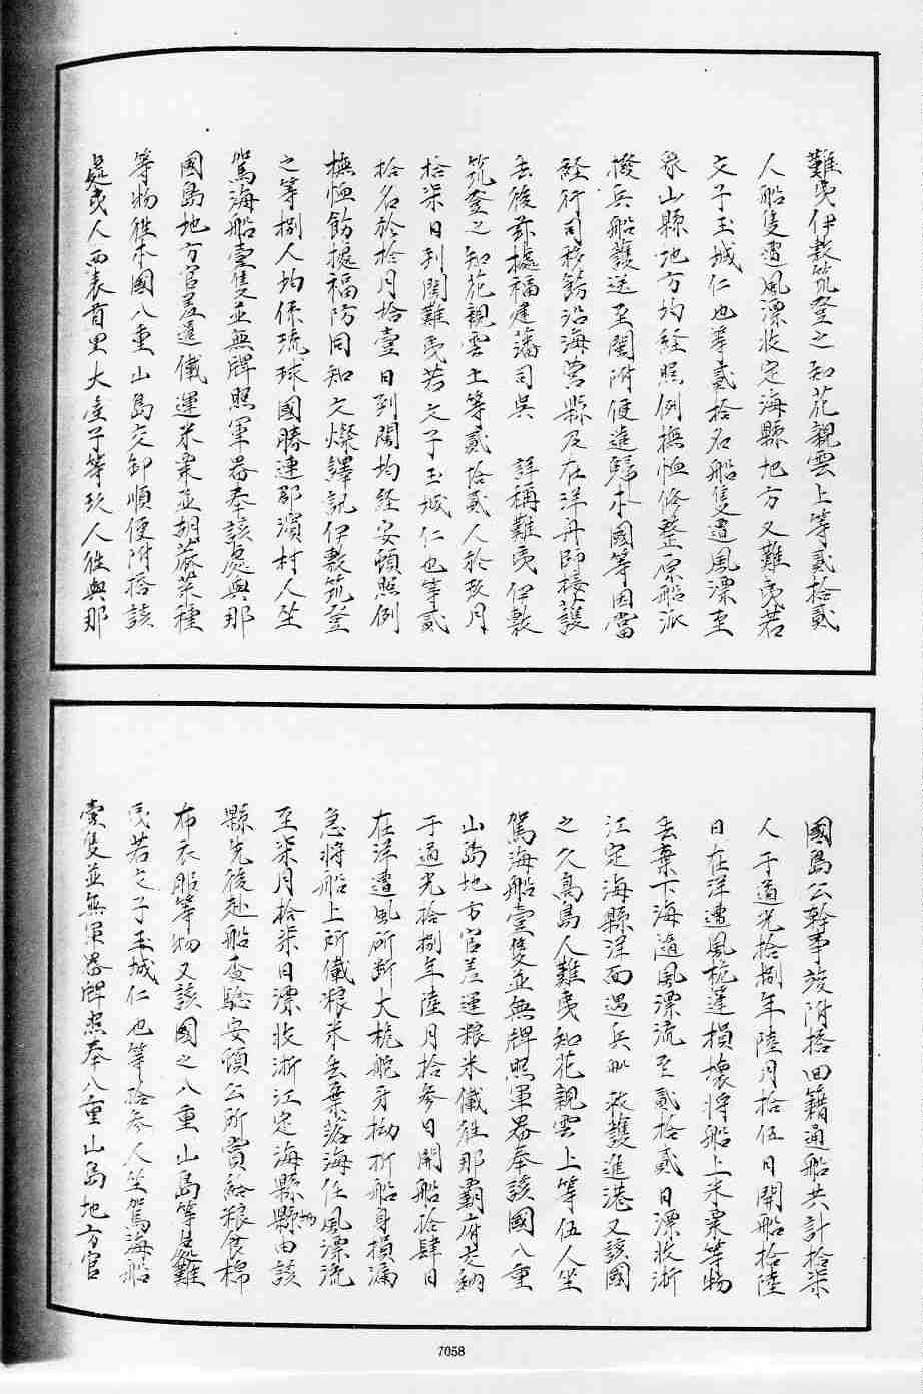 難夷伊敷筑登之知花親雲上等貳拾貳
人船隻遭風漂收定海縣地方又難夷若
文子玉城仁也等貳拾名船隻遭風漂至
象山縣地方均經照例撫恤修整原船派
撥兵船護送至閩附便進歸本國等因當
經行司移飭沿海營縣及在洋舟師接護
去後茲據福建藩司吳 詳稱難夷伊敷
筑登之知花親雲上等貳拾貳人於玖月
拾柒日到閩難夷若文子玉城仁也等貳
拾名於拾月拾壹日到閩均經安頓照例
撫恤飭據福防同知文燦譯訊伊敷筑登
之等捌人均係琉球國勝連郡濱村人坐
駕海船壹隻並無牌照軍器奉該處與那
國島地方官差遣儀運米粟並胡蔴菜種
等物往本國八重山島交卸順便附搭該
處夷人西表首里大屋子等玖人往與那
國島公幹事竣附搭回籍通船共計拾柒
人于道光拾捌年陸月拾伍日開船拾陸
日在洋遭風桅蓬損壞將船上米粟等物
丟棄下海隨風漂流至貳拾貳日漂收浙
江定海縣洋面遇兵船救護進港又該國
之久高島人難夷知花親雲上等伍人坐
駕海船壹隻並無牌照軍器奉該國八重
山島地方官差運粮米儀往那霸府交納
于道光拾捌年陸月拾參日開船拾肆日
在洋遭風所斷大桅舵牙拗折船身損漏
急將船上所儀粮米丟棄落海任風漂流
至柒月拾柒日漂收浙江定海縣縣地由該
縣先後赴船查驗安頓公所賞給粮食棉
布衣服等物又該國之八重山島等處難
夷若文子玉城仁也等拾參人坐駕海船
壹隻並無軍器牌照奉八重山島地方官
7058